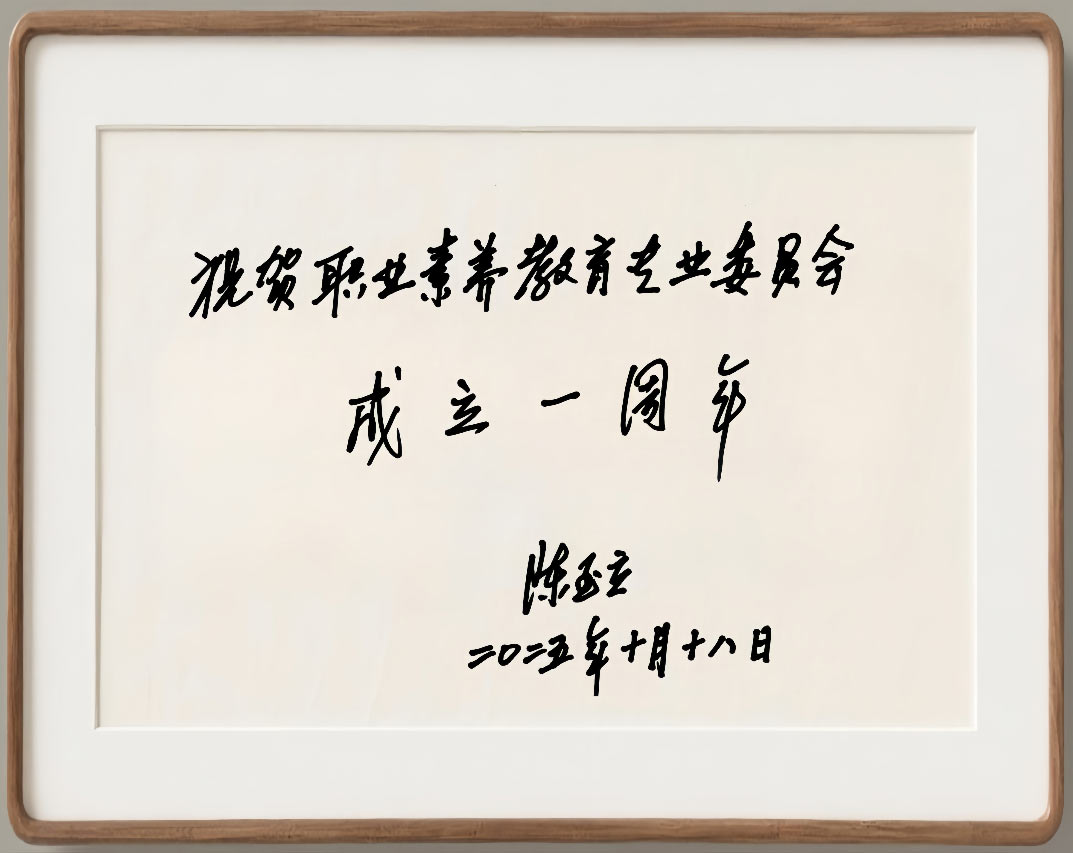 祝贺职业素养教育专业委员会
成立一周年
陈玉立
二〇二五年十月十八日